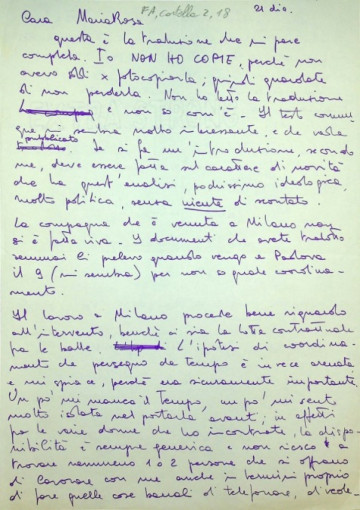 FA, cartella 2, 18
21 dic.
Cara MariaRosa
questa è la traduzione che mi pare
completa. Io NON HO COPIE, perché non
avevo soldi x fotocopiarla; quindi guardate
di non perderla. Non ho letto la traduzione
e non so com'è. Il testo comun
que mi sembra molto interessante, e che vada
pubblicato
Se si fa un'introduzione, secondo
me, deve essere fatta sul carattere di novità
che ha quest'analisi, pochissimo ideologica,
molto politica, senza niente di scontato.
La compagna che è venuta a Milano non
si è fatta viva. I documenti che avete tradotto
semmai li prelevo quando vengo a Padova
il 9 (mi sembra) per non so quale coordina-
mento.
Il lavoro a Milano procede bene riguardo
all'intervento, benché ci sia la lotta contrattuale
fra le balle. L'ipotesi di coordina-
mento che perseguo da tempo è invece arenata
e mi spiace, perché era sicuramente importante.
Un po' mi manca il tempo, un po' mi sento
molto isolata nel portarla avanti; in effetti
fra le varie donne che ho incontrato, la dispo-
nibilità è sempre generica e non riesco a
trovare nemmeno 1 o 2 persone che si offrano
di lavorare con me anche in termini proprio
di fare quelle cose banali di telefonare, di vede-